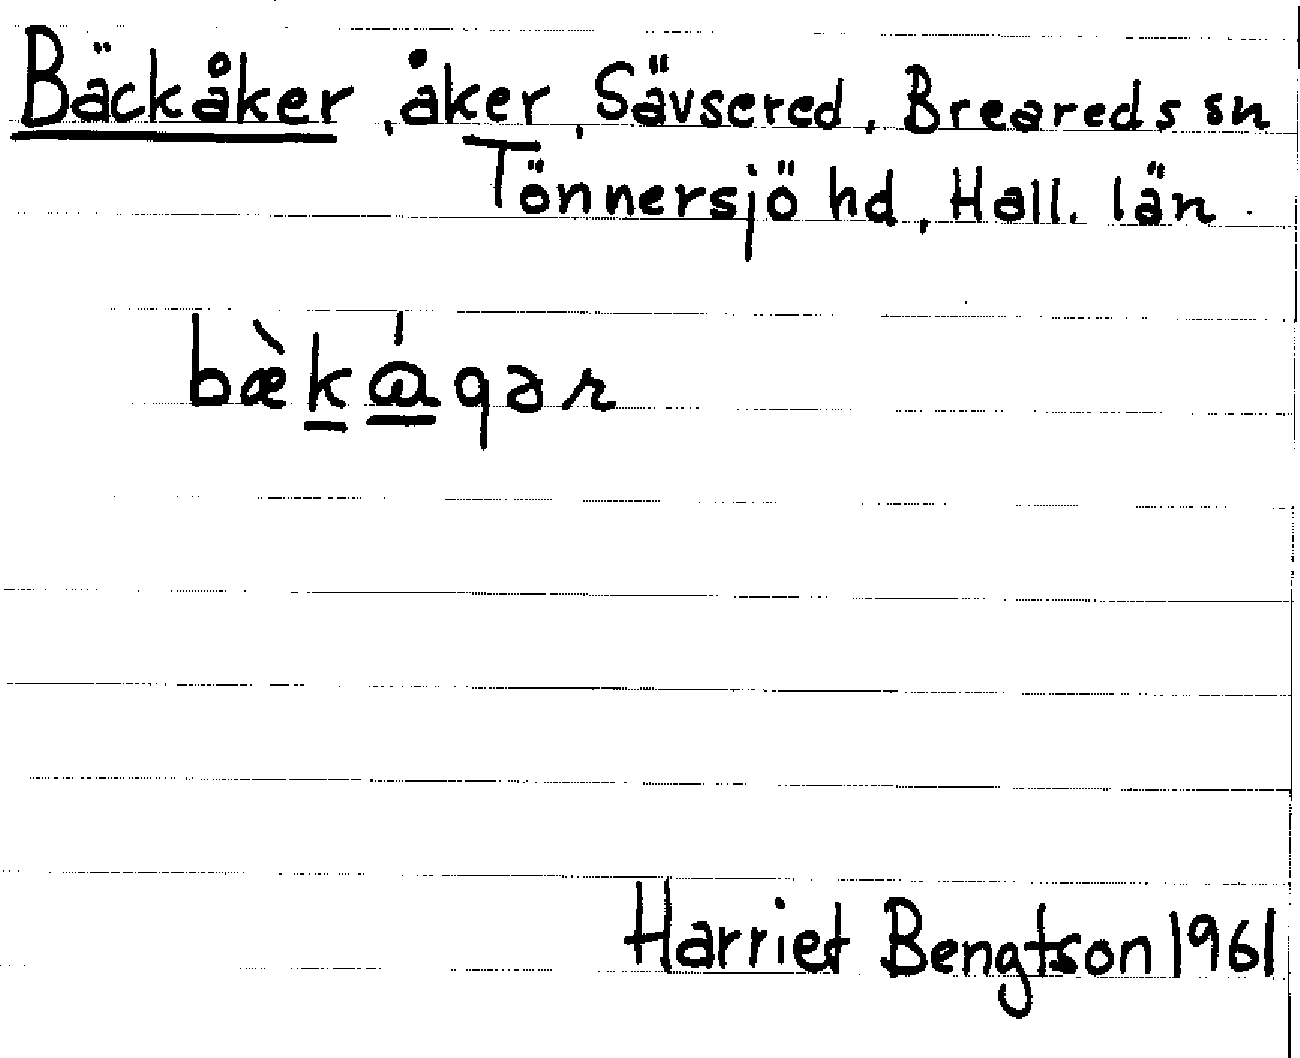 Bäckåker, åker, Sävsered, Breareds sn
Tönnersjö hd, Hall. län.
bæ̀ka̍qər
Harriet Bengtson 1961